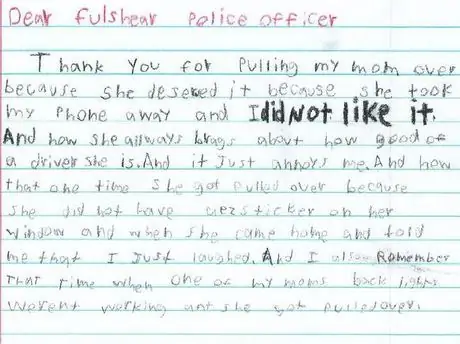 Dear fulshear Police officer
Thank you for Pulling my mom over
because she desered it because she took
my Phone away and I did Not like it.
And how she allways brags about how good of
a driver she is. And it Just annoys me. And how
that one time she got Pulled over because
she did not have  on her
window and when she came home and told
me that I Just laughed. And I also Remember
That time when one of my moms back lights
werent working ant she got Pulled over.